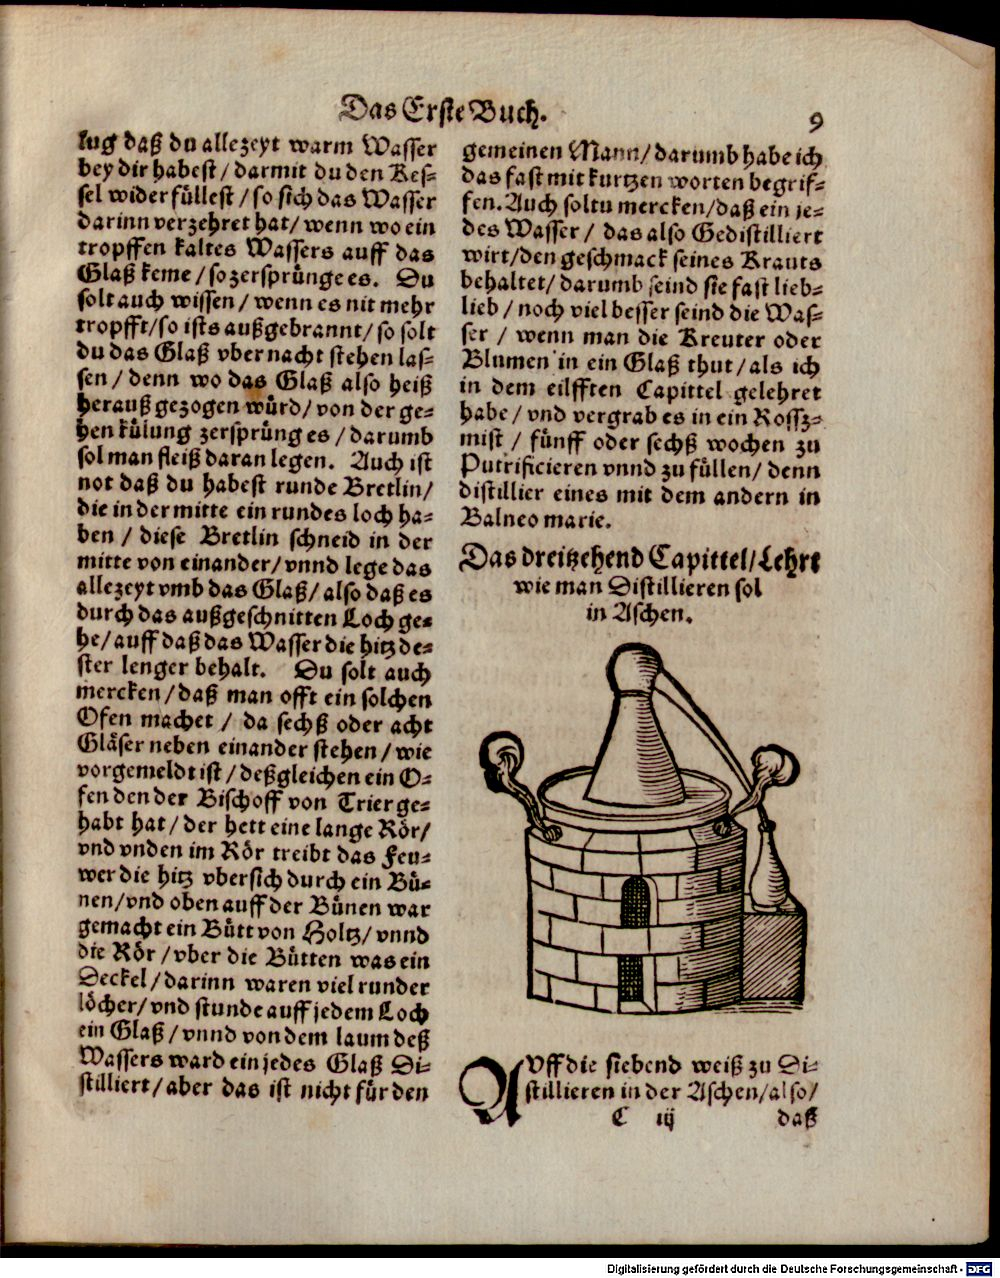 Das Erste Buch.
9
lug daß du allezeyt warm Wasser
bey dir habest / darmit du den Kes⸗
sel wider füllest / so sich das Wasser
darinn verzehret hat / wenn wo ein
tropffen kaltes Wassers auff das
Glaß keme / so zersprünge es. Du
solt auch wissen / wenn es nit mehr
tropfft / so ists außgebrannt / so solt
du das Glaß vber nacht stehen las⸗
sen / denn wo das Glaß also heiß
herauß gezogen würd / von der ge⸗
hen külung zersprüng es / darumb
sol man fleiß daran legen. Auch ist
not daß du habest runde Bretlin /
die in der mitte ein rundes loch ha⸗
ben / diese Bretlin schneid in der
mitte von einander / vnnd lege das
allezeyt vmb das Glaß / also daß es
durch das außgeschnitten Loch ge⸗
he / auff daß das Wasser die hitz de⸗
ster lenger behalt. Du solt auch
mercken / daß man offt ein solchen
Ofen machet / da sechß oder acht
Gläser neben einander stehen / wie
vorgemeldt ist / deßgleichen ein O⸗
fen den der Bischoff von Trier ge⸗
habt hat / der hett eine lange Rör /
vnd vnden im Rör treibt das Feu⸗
wer die hitz vbersich durch ein Bü⸗
nen / vnd oben auff der Bünen war
gemacht ein Bütt von Holtz / vnnd
die Rör / vber die Bütten was ein
Deckel / darinn waren viel runder
löcher / vnd stunde auff jedem Loch
ein Glaß / vnnd von dem laum deß
Wassers ward ein jedes Glaß Di⸗
stilliert / aber das ist nicht für den
gemeinen Mann / darumb habe ich
das fast mit kurtzen worten begrif⸗
fen. Auch soltu mercken / daß ein je⸗
des Wasser / das also Gedistilliert
wirt / den geschmack seines Krauts
behaltet / darumb seind sie fast lieb⸗
lieb / noch viel besser seind die Was⸗
ser / wenn man die Kreuter oder
Blumen in ein Glaß thut / als ich
in dem eilfften Capittel gelehret
habe / vnd vergrab es in ein Rossz⸗
mist / fünff oder sechß wochen zu
Putrificieren vnnd zu füllen / denn
distillier eines mit dem andern in
Balneo marie.
Das dreitzehend Capittel / Lehrt
wie man Distillieren sol
in Aschen.
AVff die siebend weiß zu Di⸗
stillieren in der Aschen / also /
C iij
daß
Digitalisierung gefördert durch die Deutsche Forschungsgemeinschaft - DFG